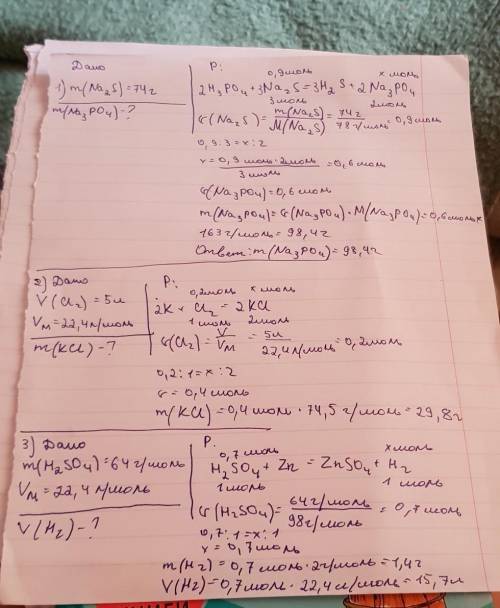 Дано
1) m(Na₂S)=74г
m(Na₃PO₄)-?
Р:
0,9моль х моль
2H₃PO₄+3Na₂S=3H₂S+2Na₃PO₄
3моль 2моль
б(Na₂S)=m(Na₂S)/M(Na₂S)=74г/78г/моль=0,9моль
0,9:3=х:2
х=0,9 моль·2моль/3 моль=0,6моль
б(Na₃PO₄)=0,6моль
m(Na₃PO₄)=б(Na₃PO₄)·M(Na₃PO₄)=0,6моль×
163г/моль=98,4г
Ответ:m(Na₃PO₄)=98,4г
2) Дано
V(Cl₂)=5л
Vм=22,4л/моль
m(KCl)-?
Р:
0,2моль х моль
2K+Cl₂=2KCl
1 моль 2моль
б(Cl₂)=V/Vм=5л/22,4л/моль=0,2моль
0,2:1=х:2
б=0,4моль
m(KCl)=0,4моль·74,5г/моль=29,8г
3) Дано
m(H₂SO₄)=64г/моль
Vм=22,4л/моль
V(H₂)-?
Р.
0,7моль хмоль
H₂SO₄+Zn=ZnSO₄+H₂
1моль 1 моль
б(H₂SO₄)=64г/моль/98г/моль=0,7моль
0,7:1=х:1
х=0,7моль
m(H₂)=0,7моль·2г/моль=1,4г
V(H₂)=0,7моль·22,4л/моль=15,7л